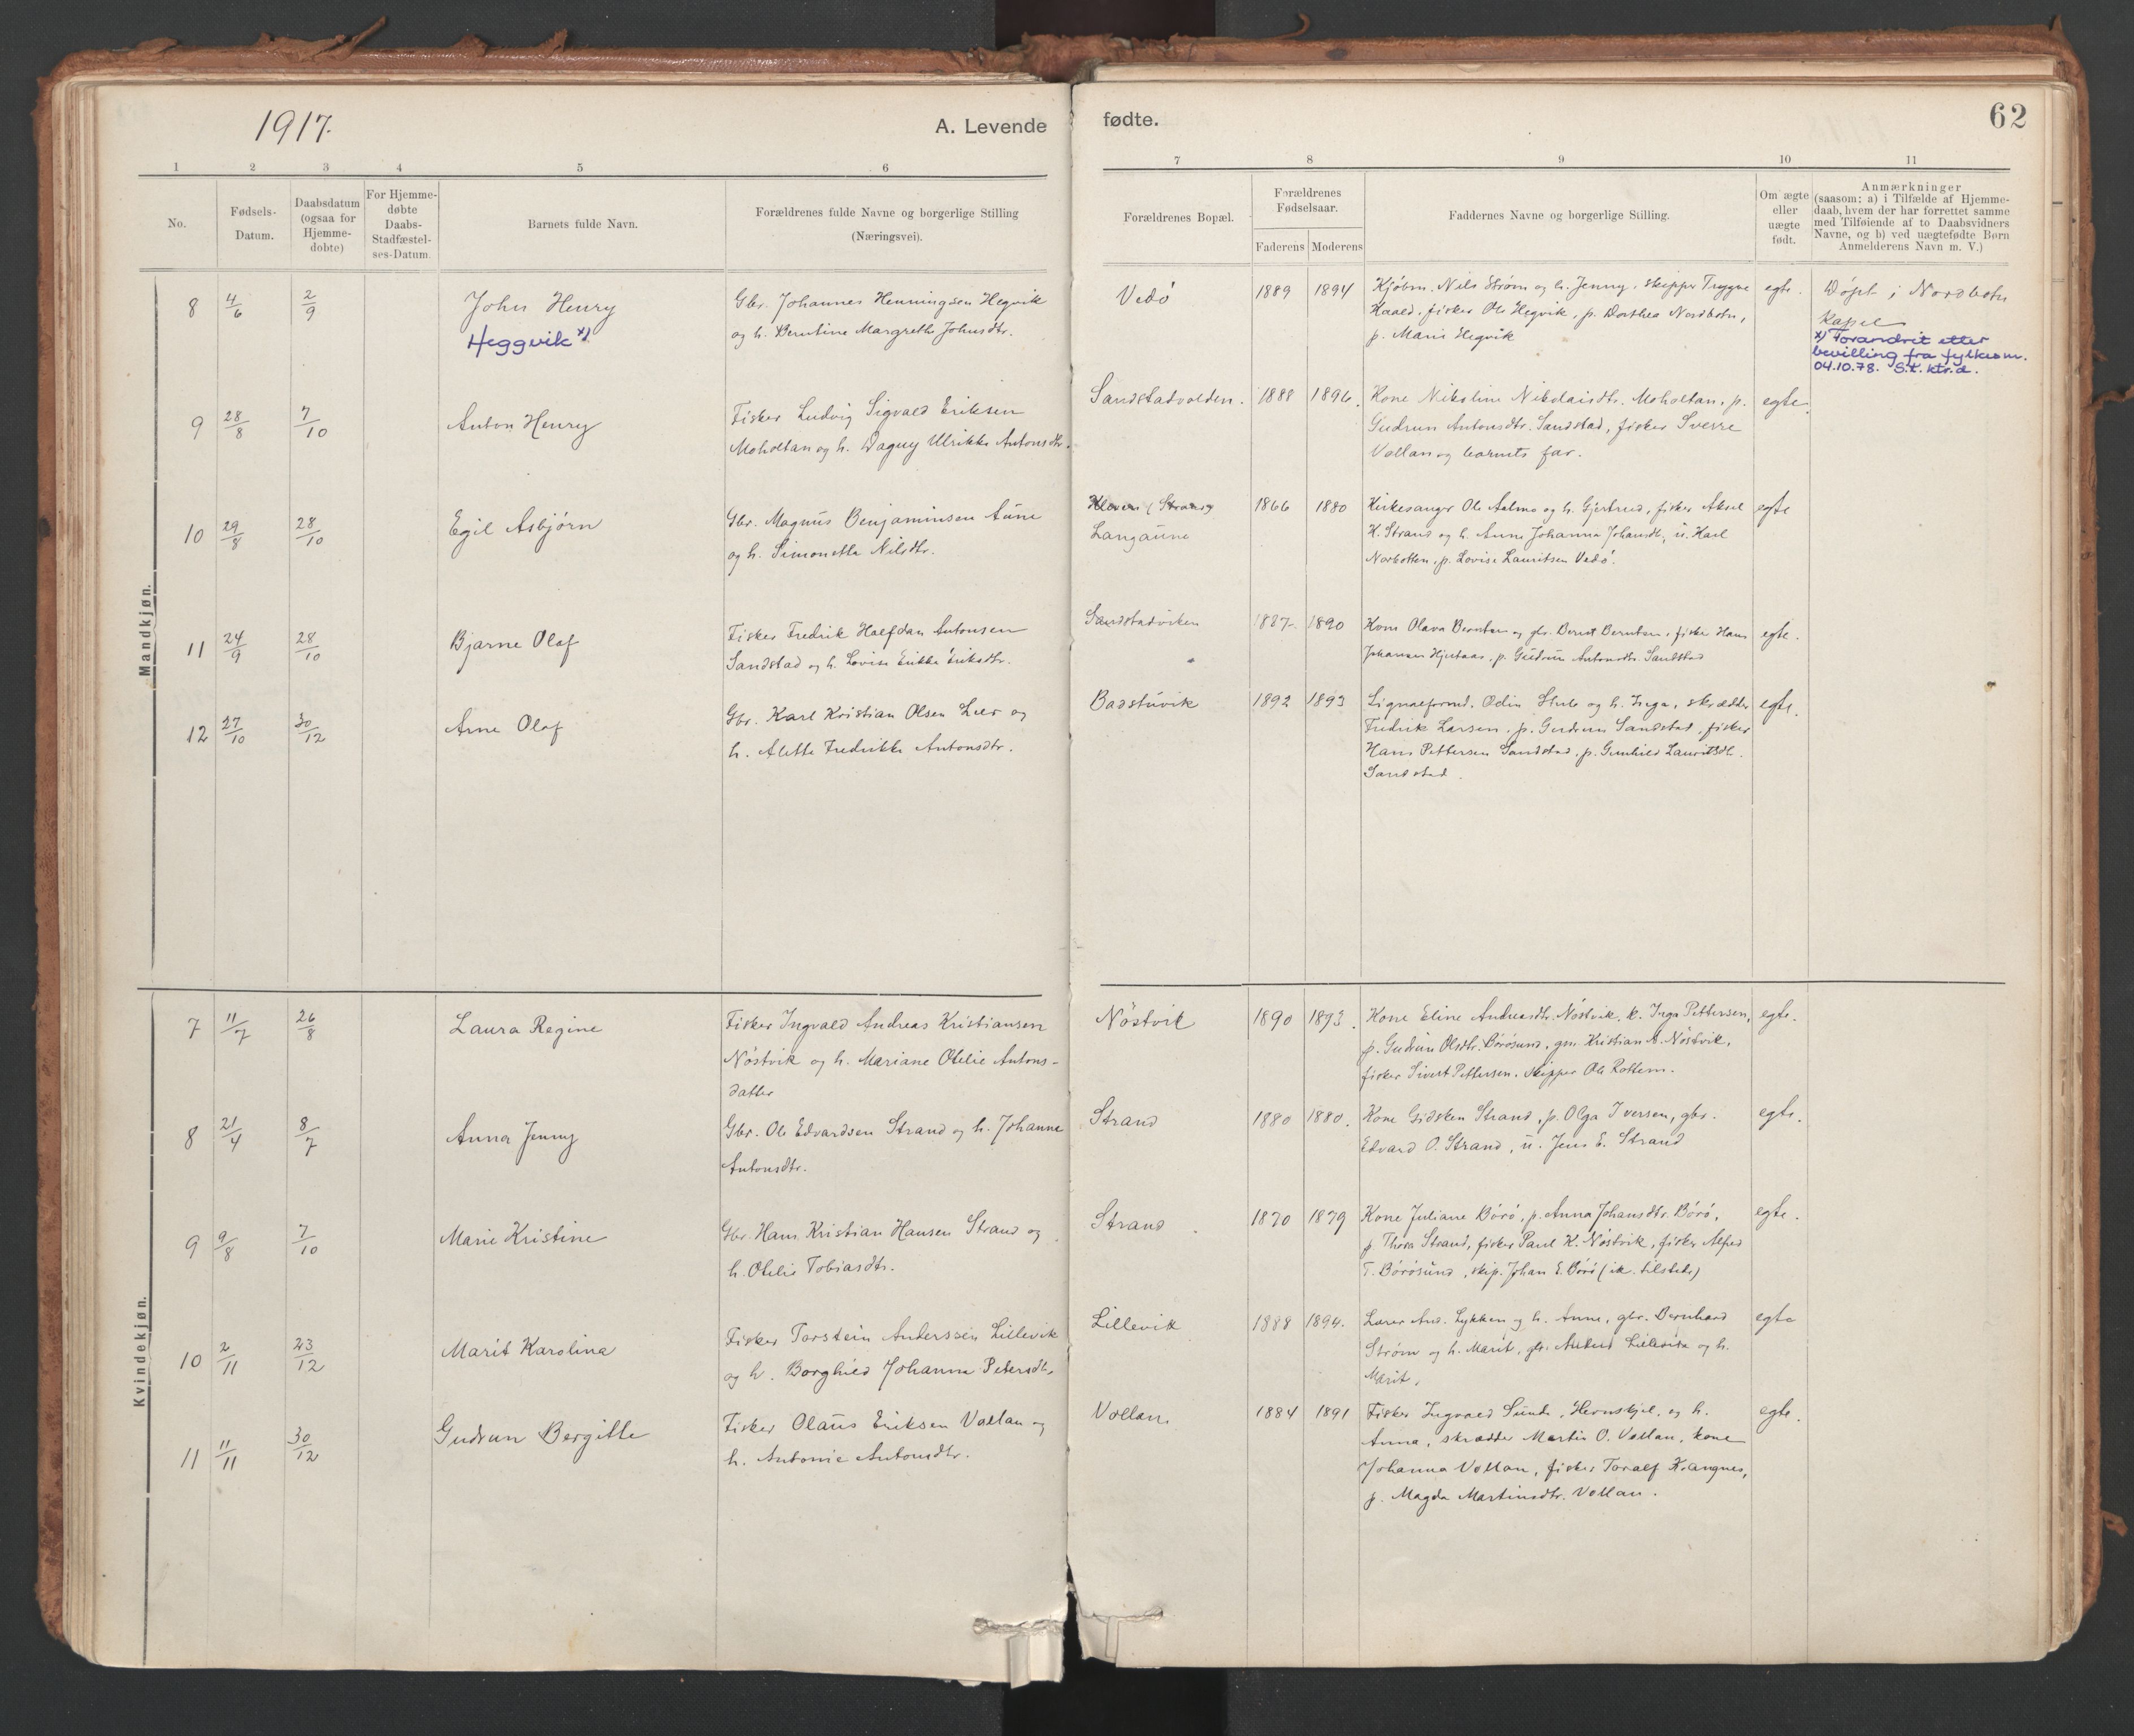 1917.
A. Levende
fødte.
62
1 2 3 4 5 6
7 8 9 10 11
No.
Fødsels-
Datum.
Daabsdatum
(ogsaa for
Hjemme-
døbte)
For Hjemme-
døbte
Daabs-
Stadfæstel-
ses-Datum.
Barnets fulde Navn.
Forældrenes fulde Navne og borgerlige Stilling
(Næringsvei).
Forældrenes Bopæl.
Forældrenes
Fødselsaar.
Faderens Moderens
Faddernes Navne og borgerlige Stilling.
Om ægte
eller
uægte
født.
Anmærkninger
(saasom: a) i Tilfælde af Hjemme-
daab, hvem der har forrettet samme
med Tilføiende af to Daabsvidners
Navne, og b) ved uægtefødte Børn
Anmelderens Navn m. V.)
Mandkjøn.
8 4/6 2/9 John Henry
Heggvik x)
Gbr. Johannes Henningsen Hegvik
og h. Berntine Margrethe Johnsdtr.
Vedö 1889 1894
Kjøbm. Nils Strøm og h. Jenny, skipper Trygve
Haald, fisker Ole Hegvik, p. Dorthea Nordbotn,
p. Marie Hegvik
egte.
Döpt i Nordbotn
Kapel
x) Forandret etter
bevilling fra fylkesm.
04.10.78. S.t. ktr.d.
9 28/8 7/10 Anton Henry
Fisker Ludvig Sigvald Eriksen
Moholtan og h. Dagny Ulrikke Antonsdtr.
Sandstadvolden. 1888 1896.
Kone Nikoline Nikolaisdtr. Moholtan, p.
Gudrun Antonsdtr. Sandstad, fisker Sverre
Vollan og barnets far.
egte.
10 29/8 28/10 Egil Asbjørn
Gbr. Magnus Benjaminsen Aune
og h. Simonette Nilsdtr.
Langaune 1866 1880
Kirkesanger Ole Aalmo og h. Gjertrud, fisker Aksel
K. Strand og h. Anne Johanna Johansdt., u. Karl
Norbotten, p. Lovise Lauritsen Vedö.
egte
11 24/9 28/10 Bjarne Olaf
Fisker Fredrik Halfdan Antonsen
Sandstad og h. Lovise Erikka Eriksdtr.
Sandstadviken 1887. 1890
Kone Olava Berntsen og gbr. Bernt Berntsen, fisker Hans
Johansen Hjertaas, p. Gudrun Antonsdtr. Sandstad
egte.
12 27/10 30/12 Arne Olaf
Gbr. Karl Kristian Olsen Leer og
h. Alette Fredrikke Antonsdtr.
Badstuvik 1892 1893
Signalformd. Odin Stub og h. Inga, skrædder
Fredrik Larsen, p. Gudrun Sandstad, fisker
Hans Pettersen Sandstad, p. Gunhild Lauritsdt.
Sandstad.
egte.
Kvindekjøn.
7 11/7 26/8 Laura Regine
Fisker Ingvald Andreas Kristiansen
Nöstvik og h. Mariane Otelie Antons-
datter
Nöstvik 1890 1893.
Kone Eline Andreasdtr. Nöstvik, k. Inga Pettersen,
p. Gudrun Olsdtr. Börösund, gm. Kristian A. Nöstvik,
fisker Sivert Pettersen, skipper Ole Rottem.
egte.
8 21/4 8/7 Anna Jenny
Gbr. Ole Edvardsen Strand og h. Johanne
Antonsdtr.
Strand 1880 1880.
Kone Gidsken Strand, p. Olga Iversen, gbr.
Edvard O. Strand, u. Jens E. Strand
egte.
9 9/8 7/10 Marie Kristine
Gbr. Hans Kristian Hansen Strand og
h. Otelie Tobiasdtr.
Strand 1870 1879
Kone Juliane Börö, p. Anna Johansdtr. Börö,
p Thora Strand, fisker Paul K. Nöstvik, fisker Alfred
T. Börösund, skip. Johan E. Börö (ik. tilstede)
egte.
10 2/11 23/12 Marit Karolina
Fisker Torstein Anderssen Lillevik
og h. Borghild Johanna Petersdtr.
Lillevik 1888 1894.
Lærer And. Lykken og h. Anne, gbr. Bernhard
Strøm og h. Marit, gbr. Lillevik og h.
Marit.
egte
11 11/11 30/12 Gudrun Bergitte
Fisker Olaus Eriksen Vollan og
h. Antonie Antonsdtr.
Vollan 1884 1891
Fisker Ingvald Sunde, Hernskjel, og h.
Anna, skrædder Martin O. Vollan, kone
Johanna Vollan, fisker Toralf Krangnes,
p. Magda Martinsdtr. Vollan.
egte.